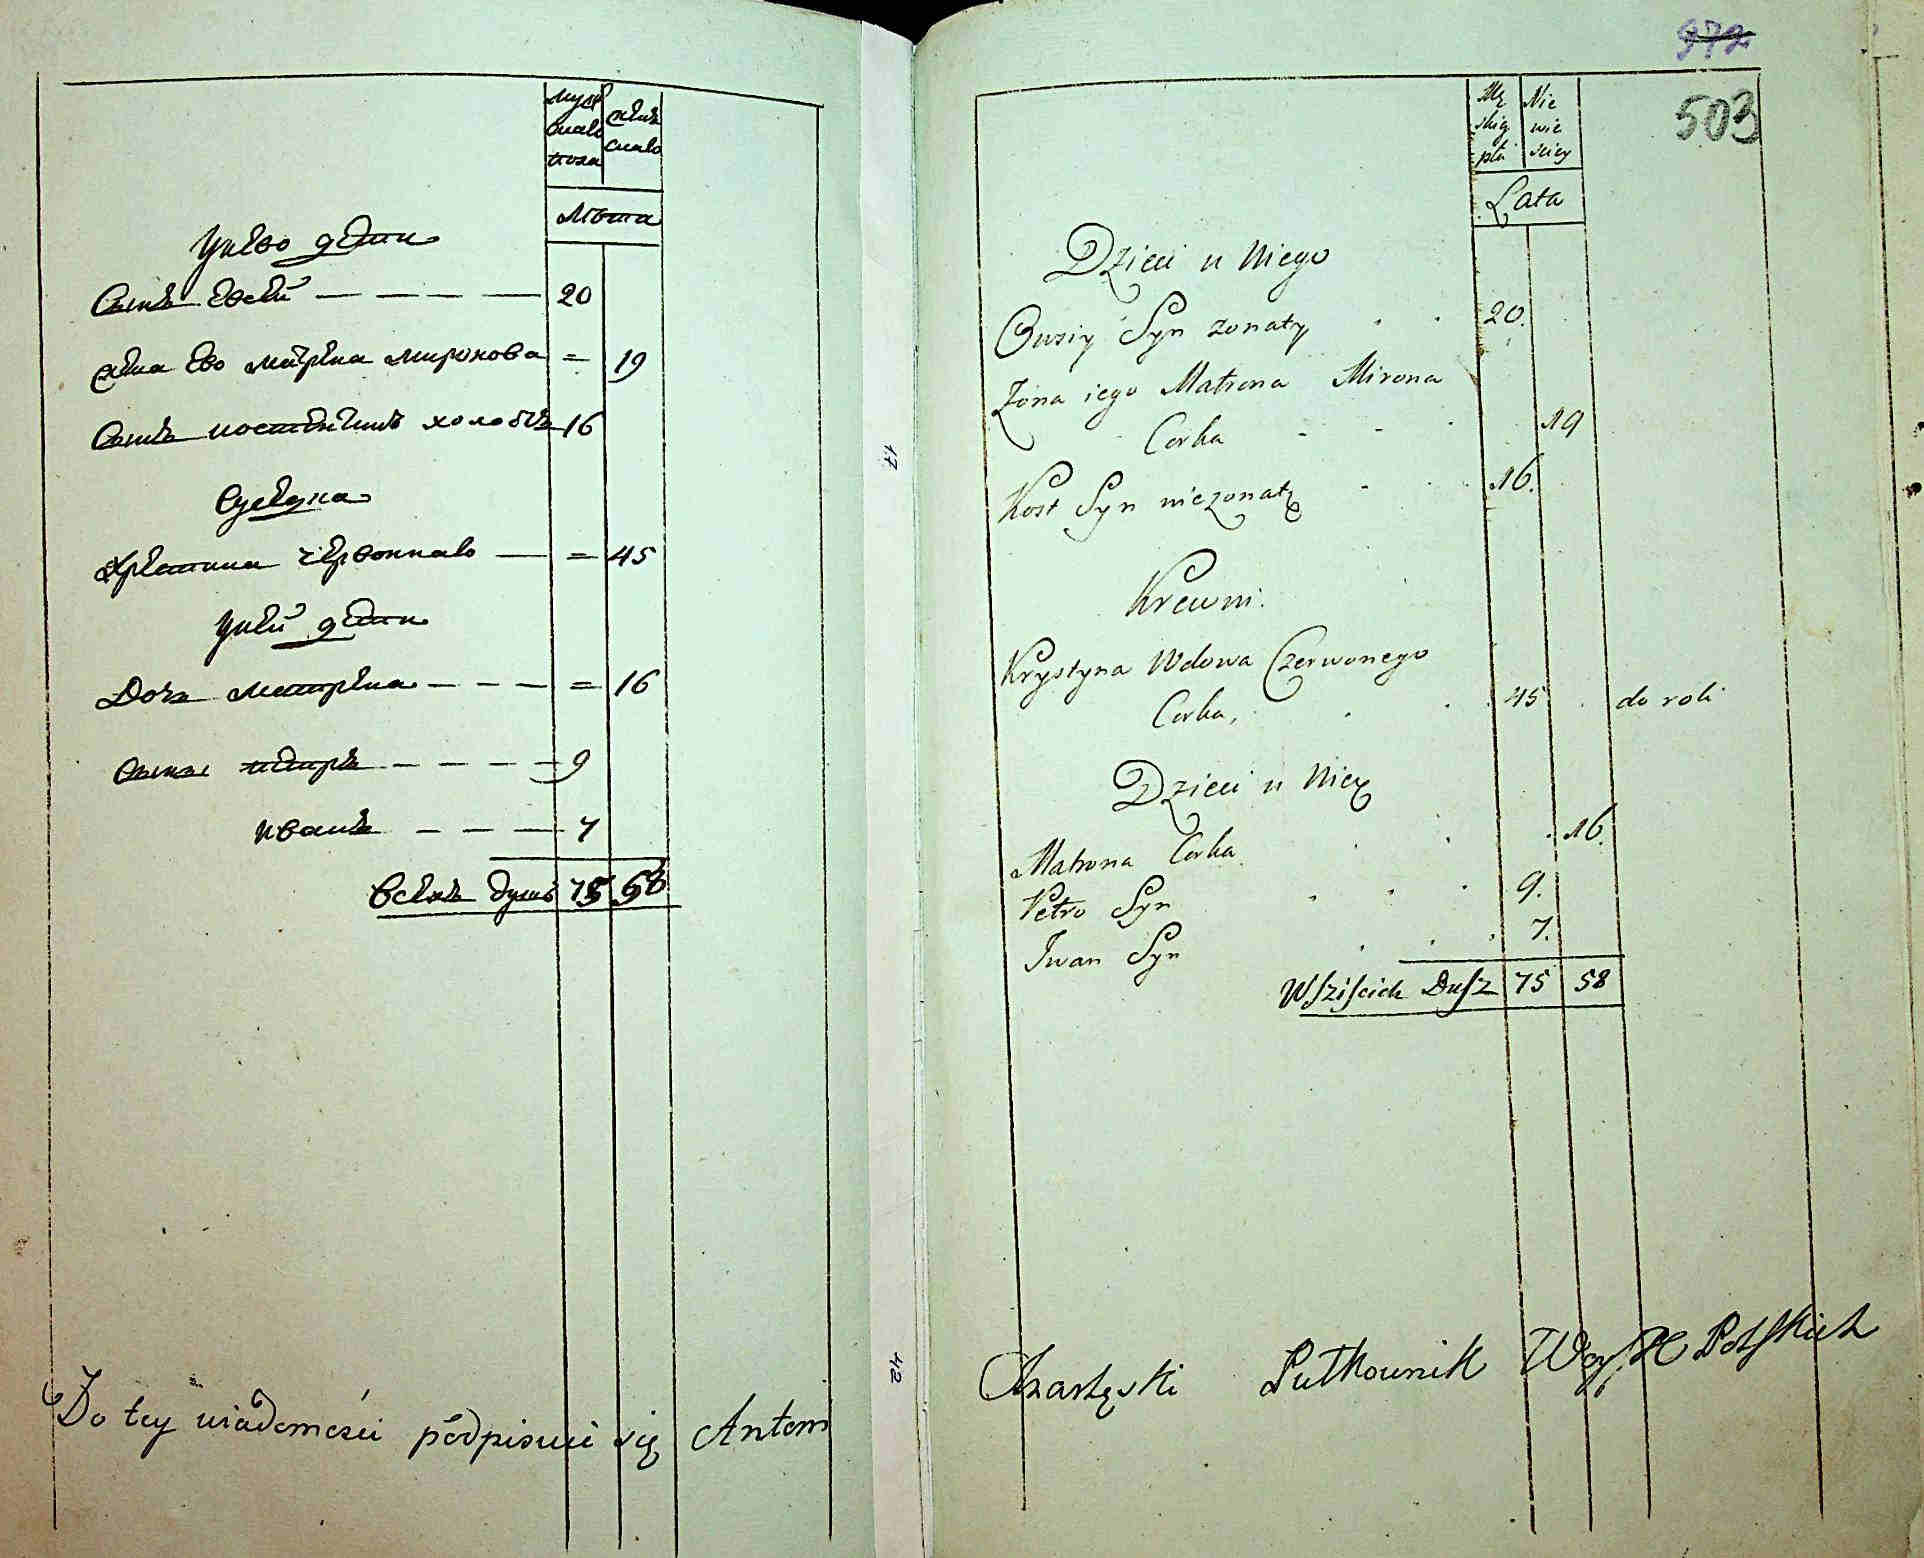 муж
скаго
пола
женскаго
лѣта
У него дѣти
Сынъ Евсей — — — — 20
жена Ево матрена миронова = 19
Сынъ костентинъ холостъ 16
Суседка
Хрестина червоннаго — = 45
У ней дѣти
Дочь матрена — — — = 16
Сыны петръ — — — — 9
иванъ — — — 7
Всехъ душъ 75 58
Do tey wiadomości podpisuie się Antoni
17
42
972
503
Mę
skiey
płci
Nie
wie
sciey
Lata
Dzieci u Niego
Owsiy Syn zonaty . . 20.
Zona iego Matrona Mirona
Corka - - . 19
Kost Syn niezonaty . . 16.
Krewni.
Krystyna Wdowa Czerwonego
Corka, . . 45 . do roli
Dzieci u Niey
Matrona Corka . . . 16.
Petro Syn . . . 9.
Iwan Syn . . . 7.
Wsziscich Dusz 75 58
Pułkownik Woysk Polskich